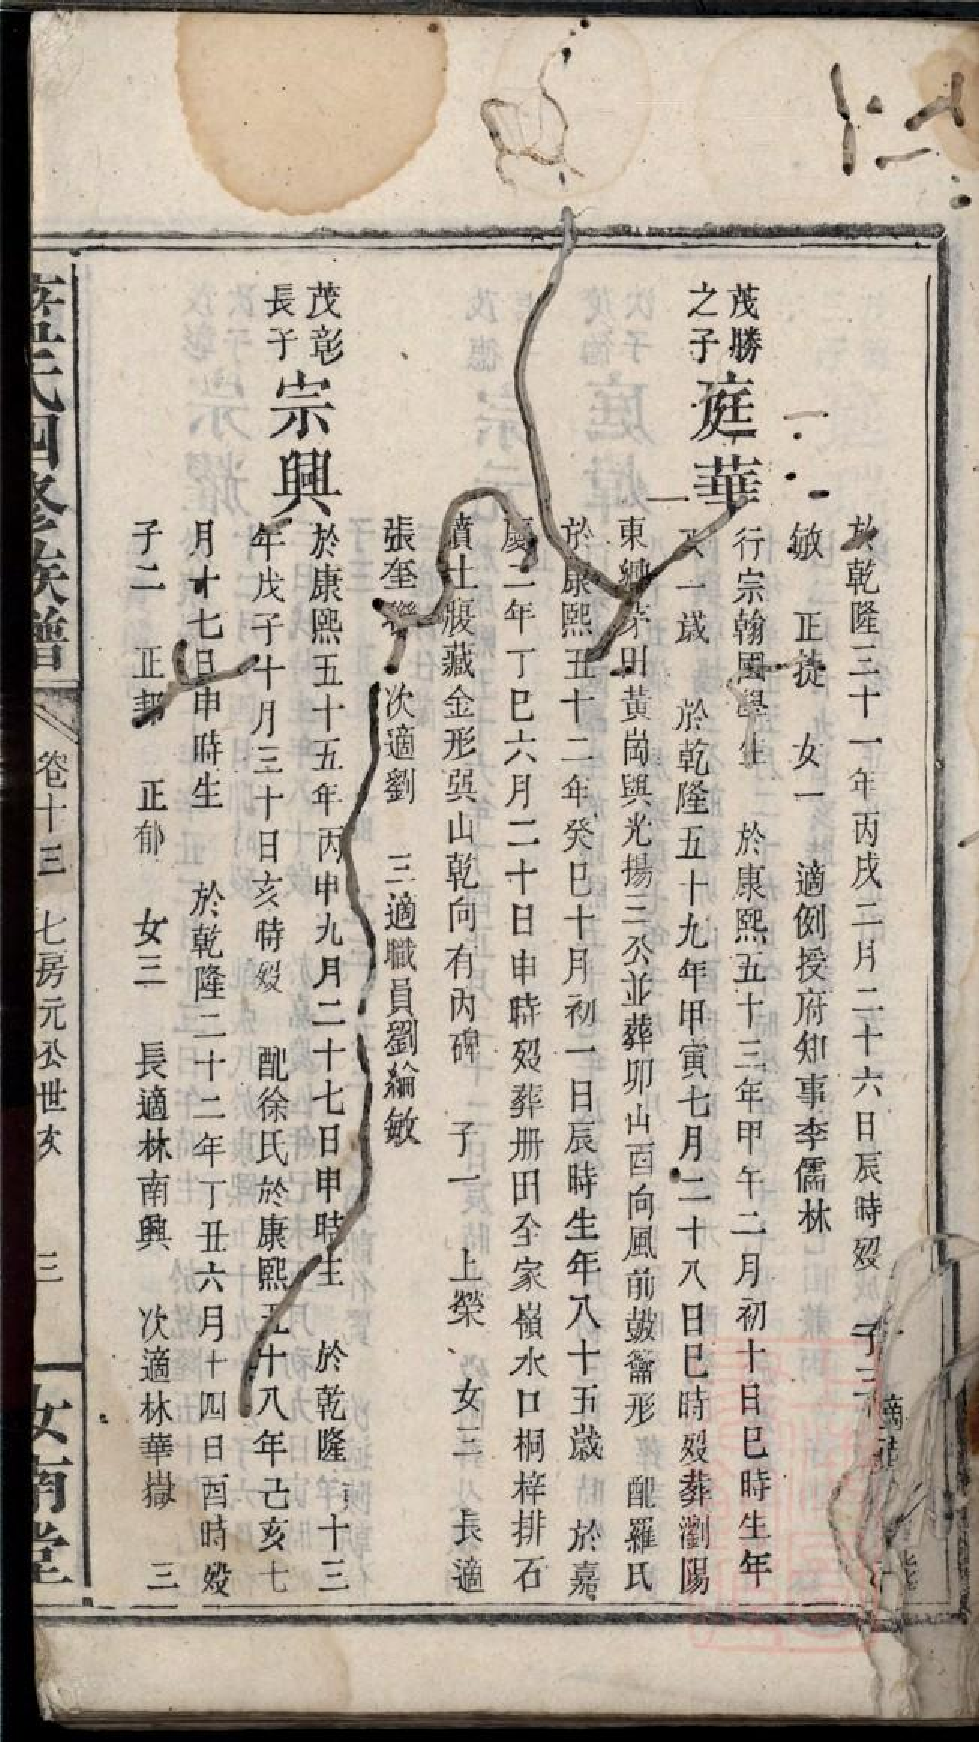 於乾隆三十一年丙戌二月二十六日辰時歿 子三
敏 正捷 女一 適例授府知事李儒林
茂勝
之子
庭華
行宗翰國學生 於康熙五十三年甲午二月初十日巳時生年
八十一歲 於乾隆五十九年甲寅七月二十八日巳時歿葬瀏陽
東鄉茅田黃崗與光揚三公並葬卯山酉向風前 形 配羅氏
於康熙五十二年癸巳十月初一日辰時生年八十五歲 於嘉
慶二年丁巳六月二十日申時歿葬冊田全家嶺水口桐梓排石
墳土 藏金形巽山乾向有內碑 子一 上榮 女三 長適
張奎聯 次適劉 三適職員劉綸敏
茂彰
長子
宗興
於康熙五十五年丙申九月二十七日申時生 於乾隆三十三
年戊子十月三十日亥時歿 配徐氏於康熙五十八年己亥七
月十七日申時生 於乾隆二十二年丁丑六月十四日酉時歿
子二 正邦 正郁 女三 長適林南興 次適林華嶽 三
氏四修族譜
卷十三 七房元公世次
三
汝南堂